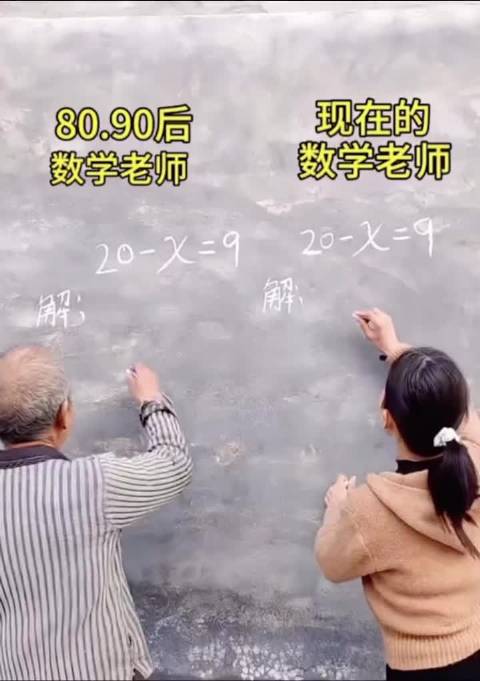 80.90后
数学老师
20-x=9
解:
现在的
数学老师
20-x=9
解: